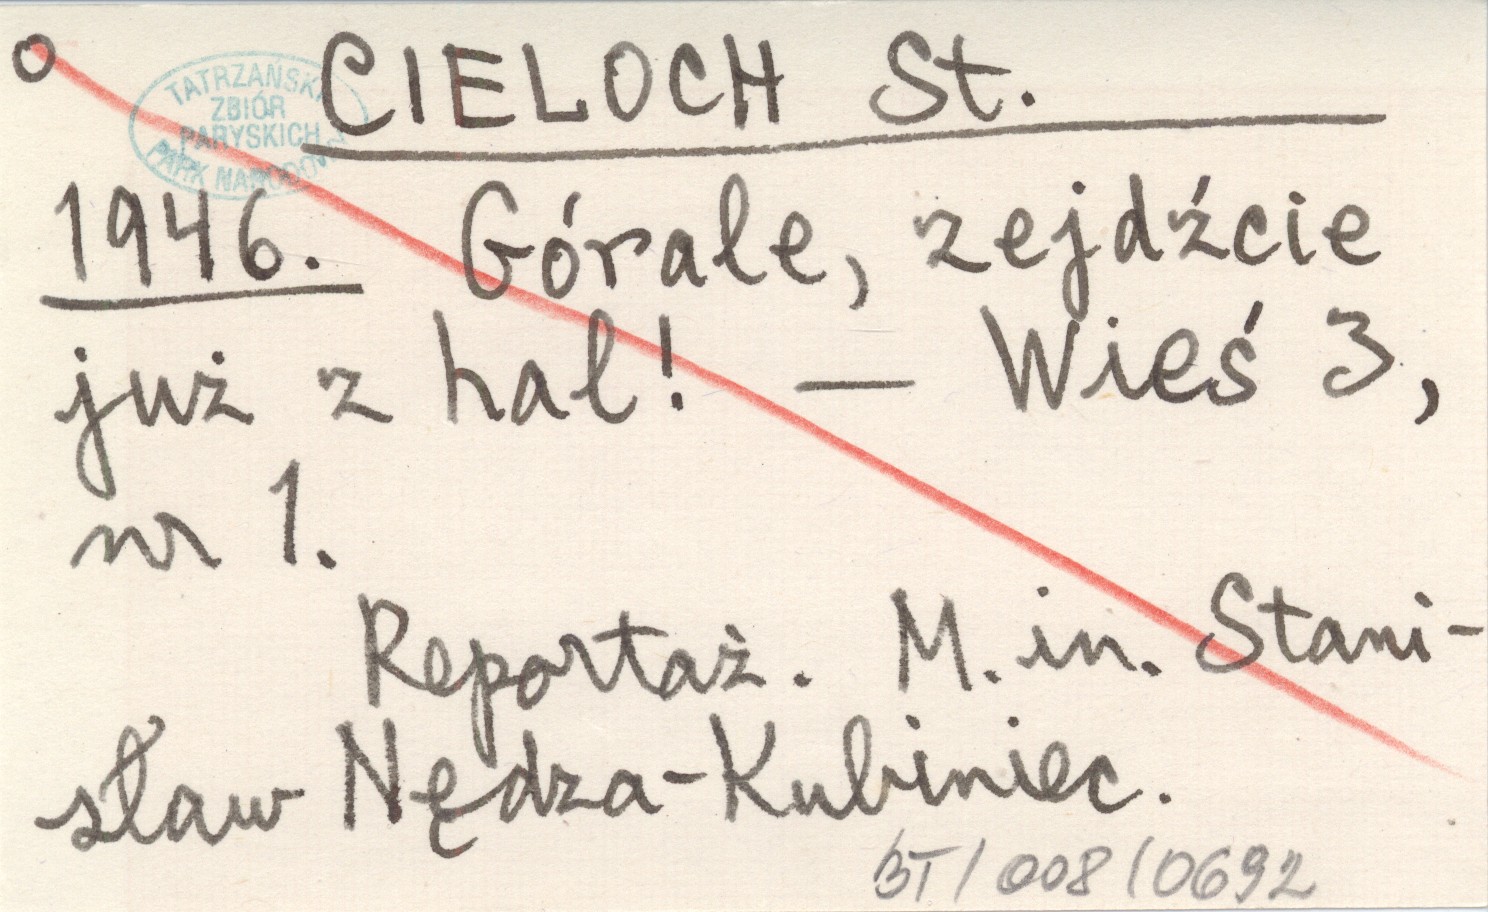 o
CIELOCH St.
TATRZAŃSKI
ZBIÓR
PARYSKICH
PARK NARODOWY
1946. Górale, zejdźcie
już z hal! — Wieś 3,
nr 1.
Reportaż. M. in. Stani-
sław Nędza-Kubiniec.
BT/008/0692